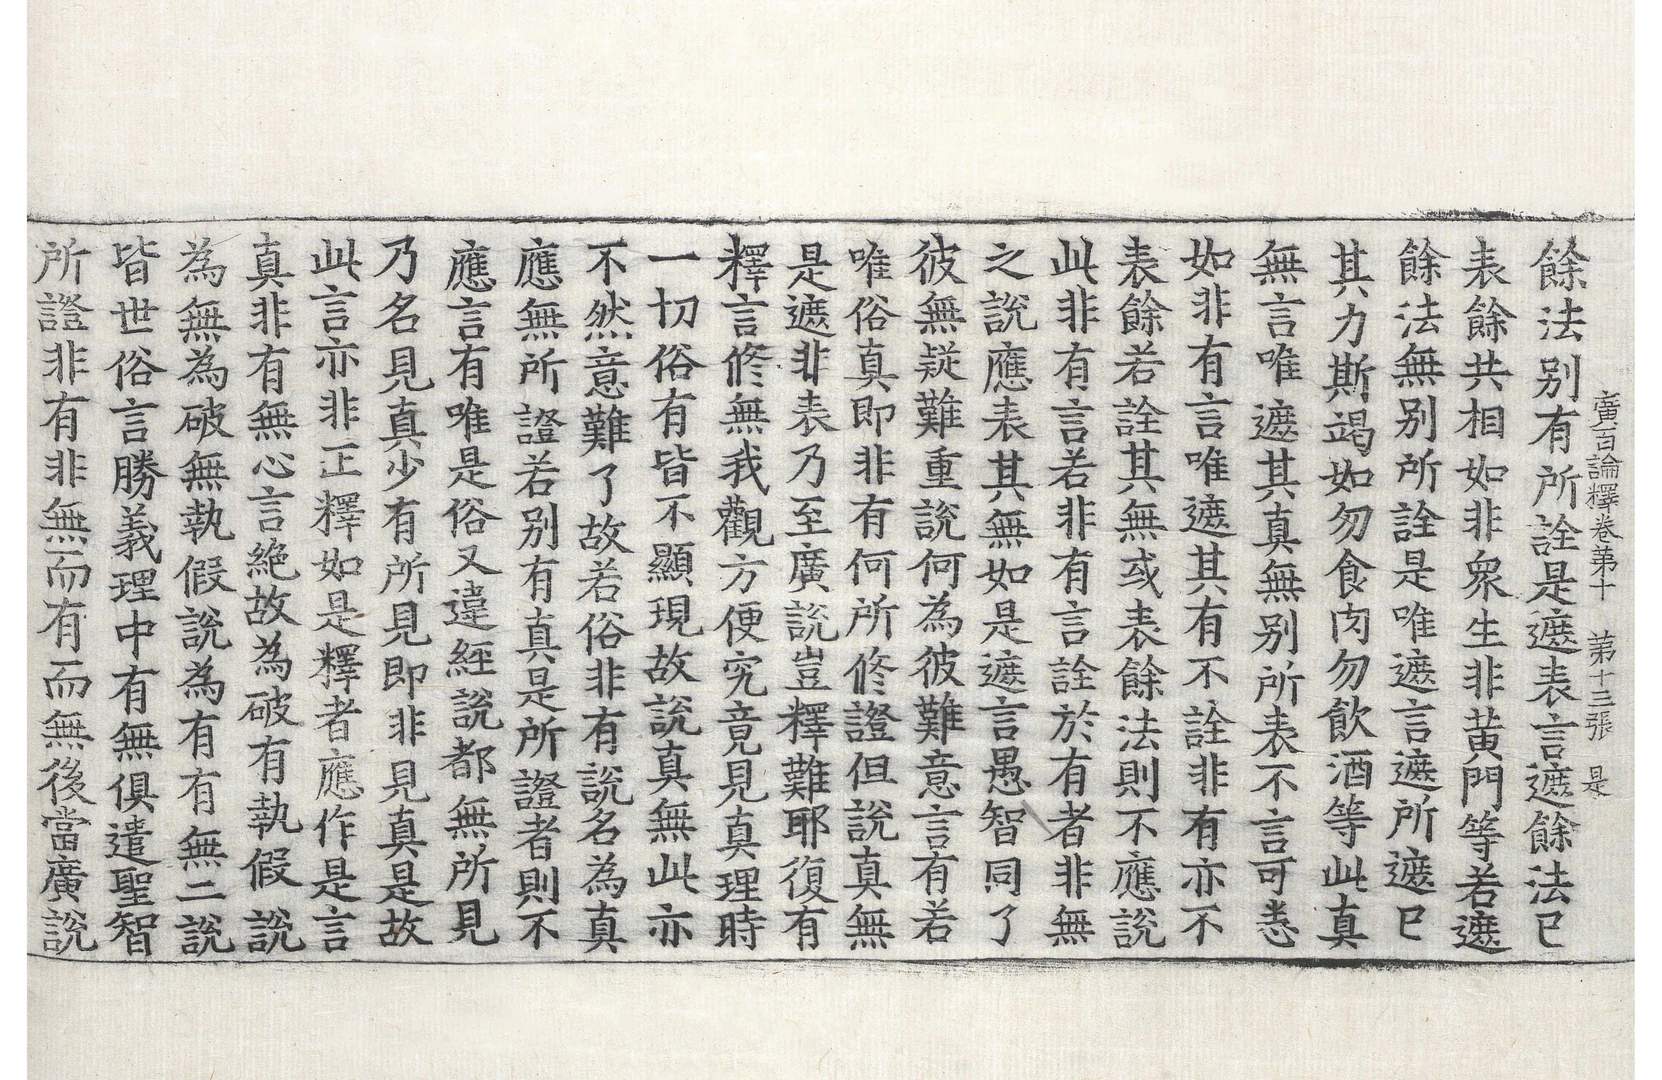 廣百論釋卷第十　第十三張　是
餘法別有所詮是遮表言遮餘法已
表餘共相如非衆生非黃門等若遮
餘法無別所詮是唯遮言遮所遮已
其力斯竭如勿食肉勿飮酒等此真
無言唯遮其真無別所表不言可恚
如非有言唯遮其有不詮非有亦不
表餘若詮其無或表餘法則不應說
此非有言若非有言詮於有者非無
之說應表其無如是遮言愚智同了
彼無疑難重說何為彼難意言有若
唯俗真即非有何所修證但說真無
是遮非表乃至廣說豈釋難耶復有
釋言修無我觀方便究竟見真理時
一切俗有皆不顯現故說真無此亦
不然意難了故若俗非有說名為真
應無所證若別有真是所證者則不
應言有唯是俗又違經說都無所見
乃名見真少有所見即非見真是故
此言亦非正釋如是釋者應作是言
真非有無心言絶故為破有執假說
為無為破無執假說為有有無二說
皆世俗言勝義理中有無俱遣聖智
所證非有非無而有而無後當廣說